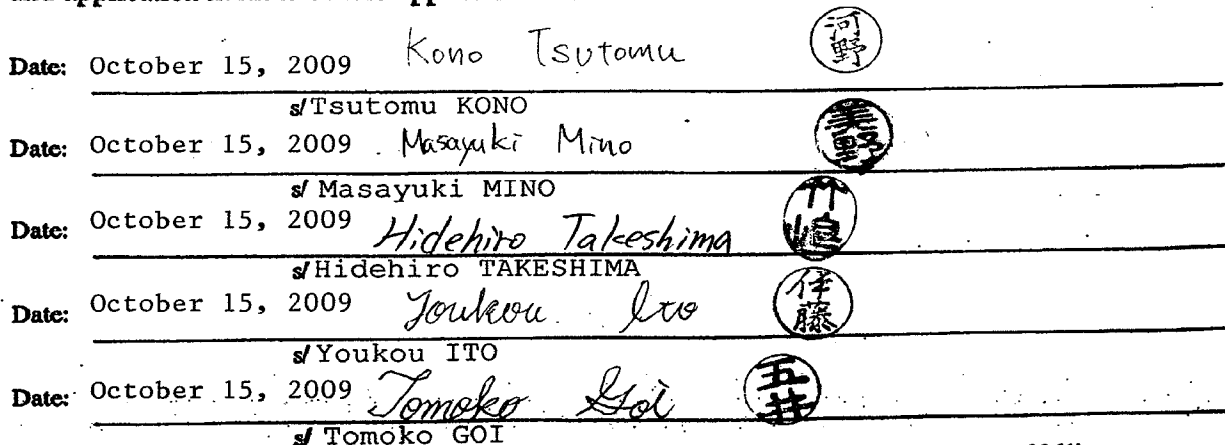 Date: October 15, 2009 Kono Tsutomu 河野
s/Tsutomu KONO
Date: October 15, 2009 Masayuki Mino
s/ Masayuki MINO
Date: October 15, 2009 Hidehiro Takeshima 竹嶋
s/Hidehiro TAKESHIMA
Date: October 15, 2009 Youkou Ito 伊藤
s/Youkou ITO
Date: October 15, 2009 Tomoko Goi 五井
s/ Tomoko GOI